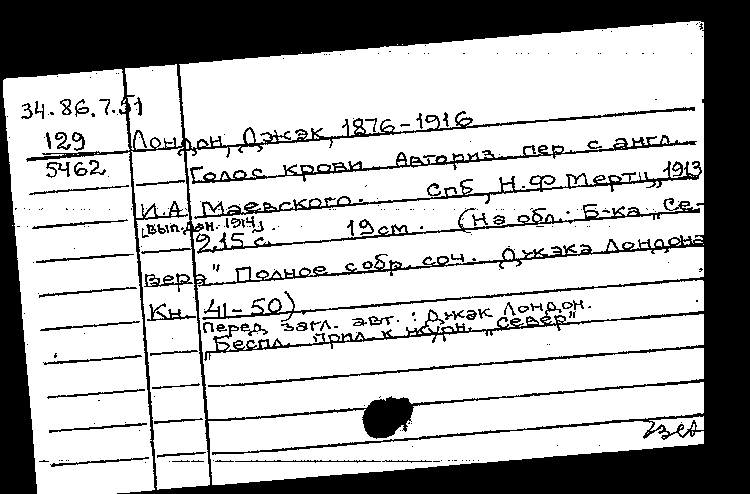 34.86.7.51
129
5462
Лондон, Джэк, 1876-1916
Голос крови. Авториз. пер. с англ.
И.А. Маевского. СПб, Н.Ф. Мертц, 1913
[вып. дан. 1914].
215 с. 19 см. (На обл.: Б-ка „Се-
вера" Полное собр. соч. Джэка Лондона
Кн. 41-50).
Перед загл. авт.: Джэк Лондон.
„Беспл. прил. к журн. „Север"